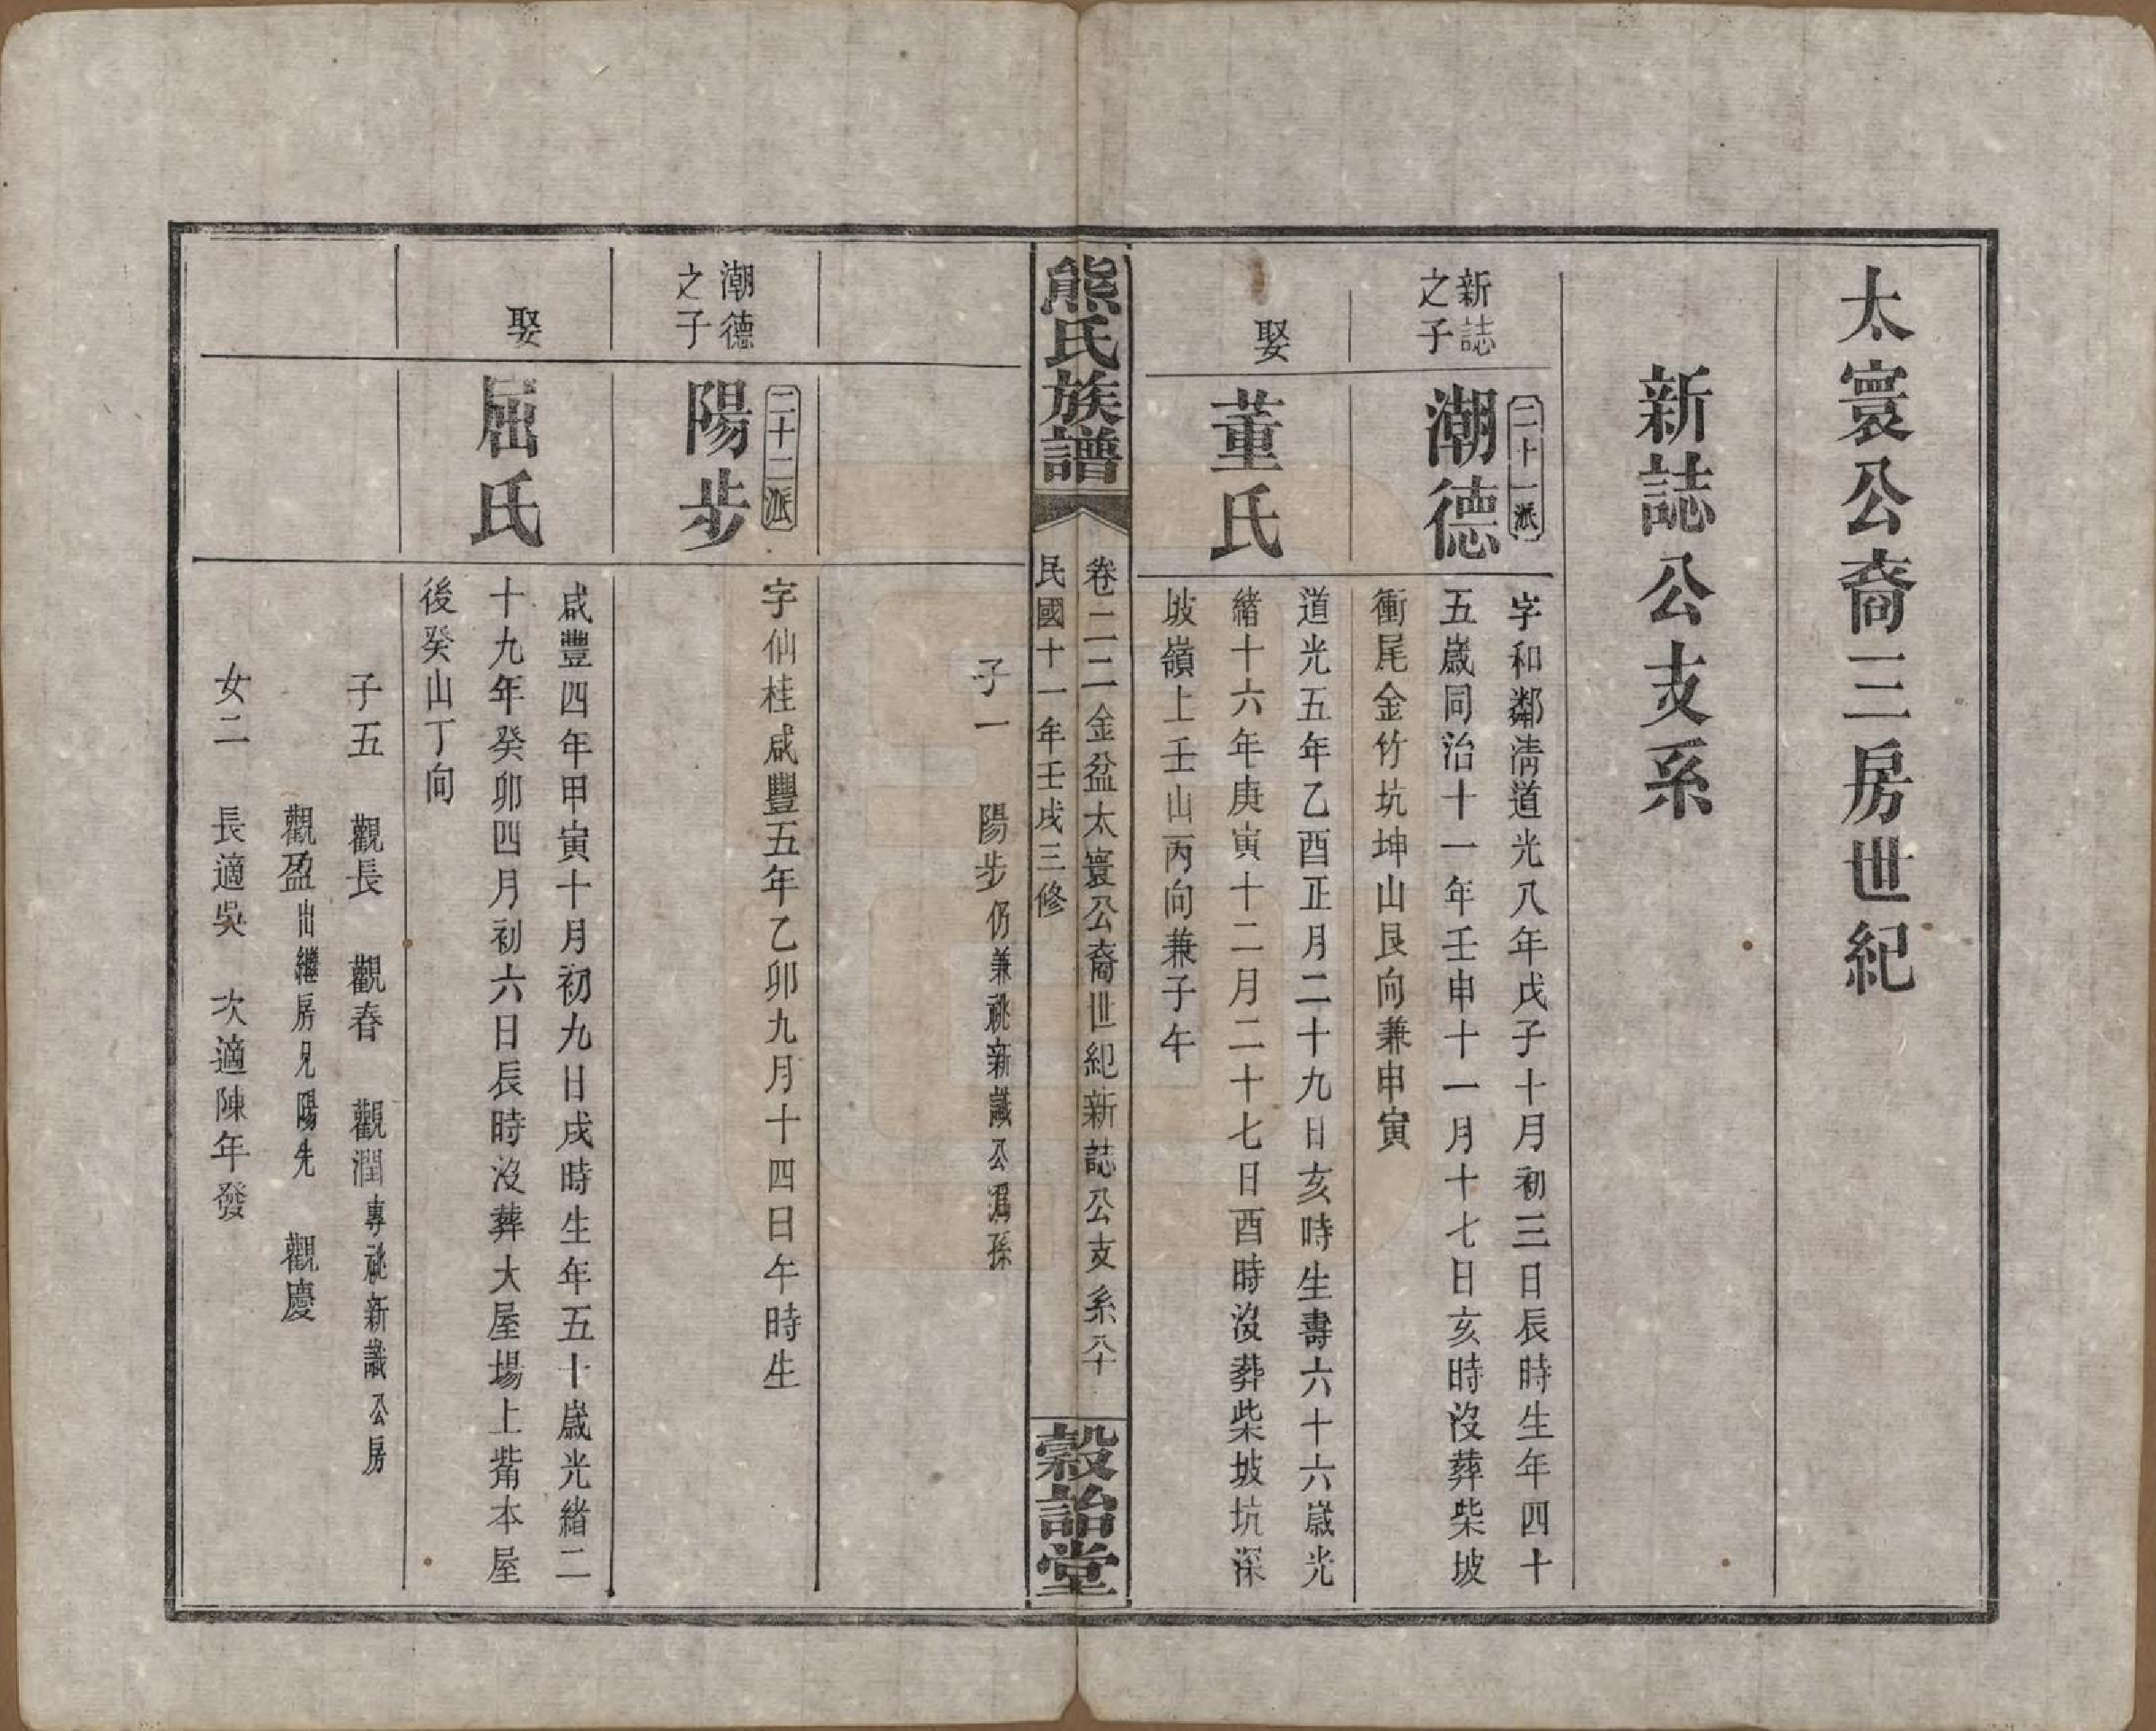 太寰公裔三房世紀
新誌公支系
新誌之子
潮德
二十一派
字和鄰清道光八年戊子十月初三日辰時生年四十
五歲同治十一年壬申十一月十七日亥時沒葬柴坡
衝尾金竹坑坤山艮向兼申寅
娶
董氏
道光五年乙酉正月二十九日亥時生壽六十六歲光
緒十六年庚寅十二月二十七日酉時沒葬柴坡坑深
坡嶺上壬山丙向兼子午
熊氏族譜
卷二二金盆太寰公裔世紀新誌公支系
八十
民國十一年壬戌三修
穀詒堂
子一　陽步仍兼祧新識公為孫
潮德之子
陽步
二十二派
字仙桂咸豐五年乙卯九月十四日午時生
娶
屈氏
咸豐四年甲寅十月初九日戌時生年五十歲光緒二
十九年癸卯四月初六日辰時沒葬大屋場上觜本屋
後癸山丁向
子五　觀長　觀春　觀潤專祧新識公房
觀盈出繼房兄陽先　觀慶
女二　長適吳　次適陳年發